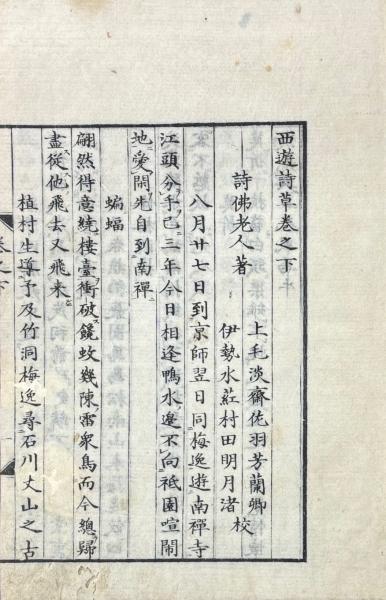 西遊詩草卷之下
詩佛老人著
上毛淡齋佐羽芳蘭卿
伊勢水荭村田明月渚校
八月廿七日到京師翌日同梅逸遊南禪寺
江頭分手已三年今日相逢鴨水邊不向祇園喧閙
地愛閑先自到南禪
蝙蝠
翩然得意繞樓臺衝破饑蚊幾陳雷衆鳥而今總歸
盡從他飛去又飛來
植村生導予及竹洞梅逸尋石川丈山之古
卷之下